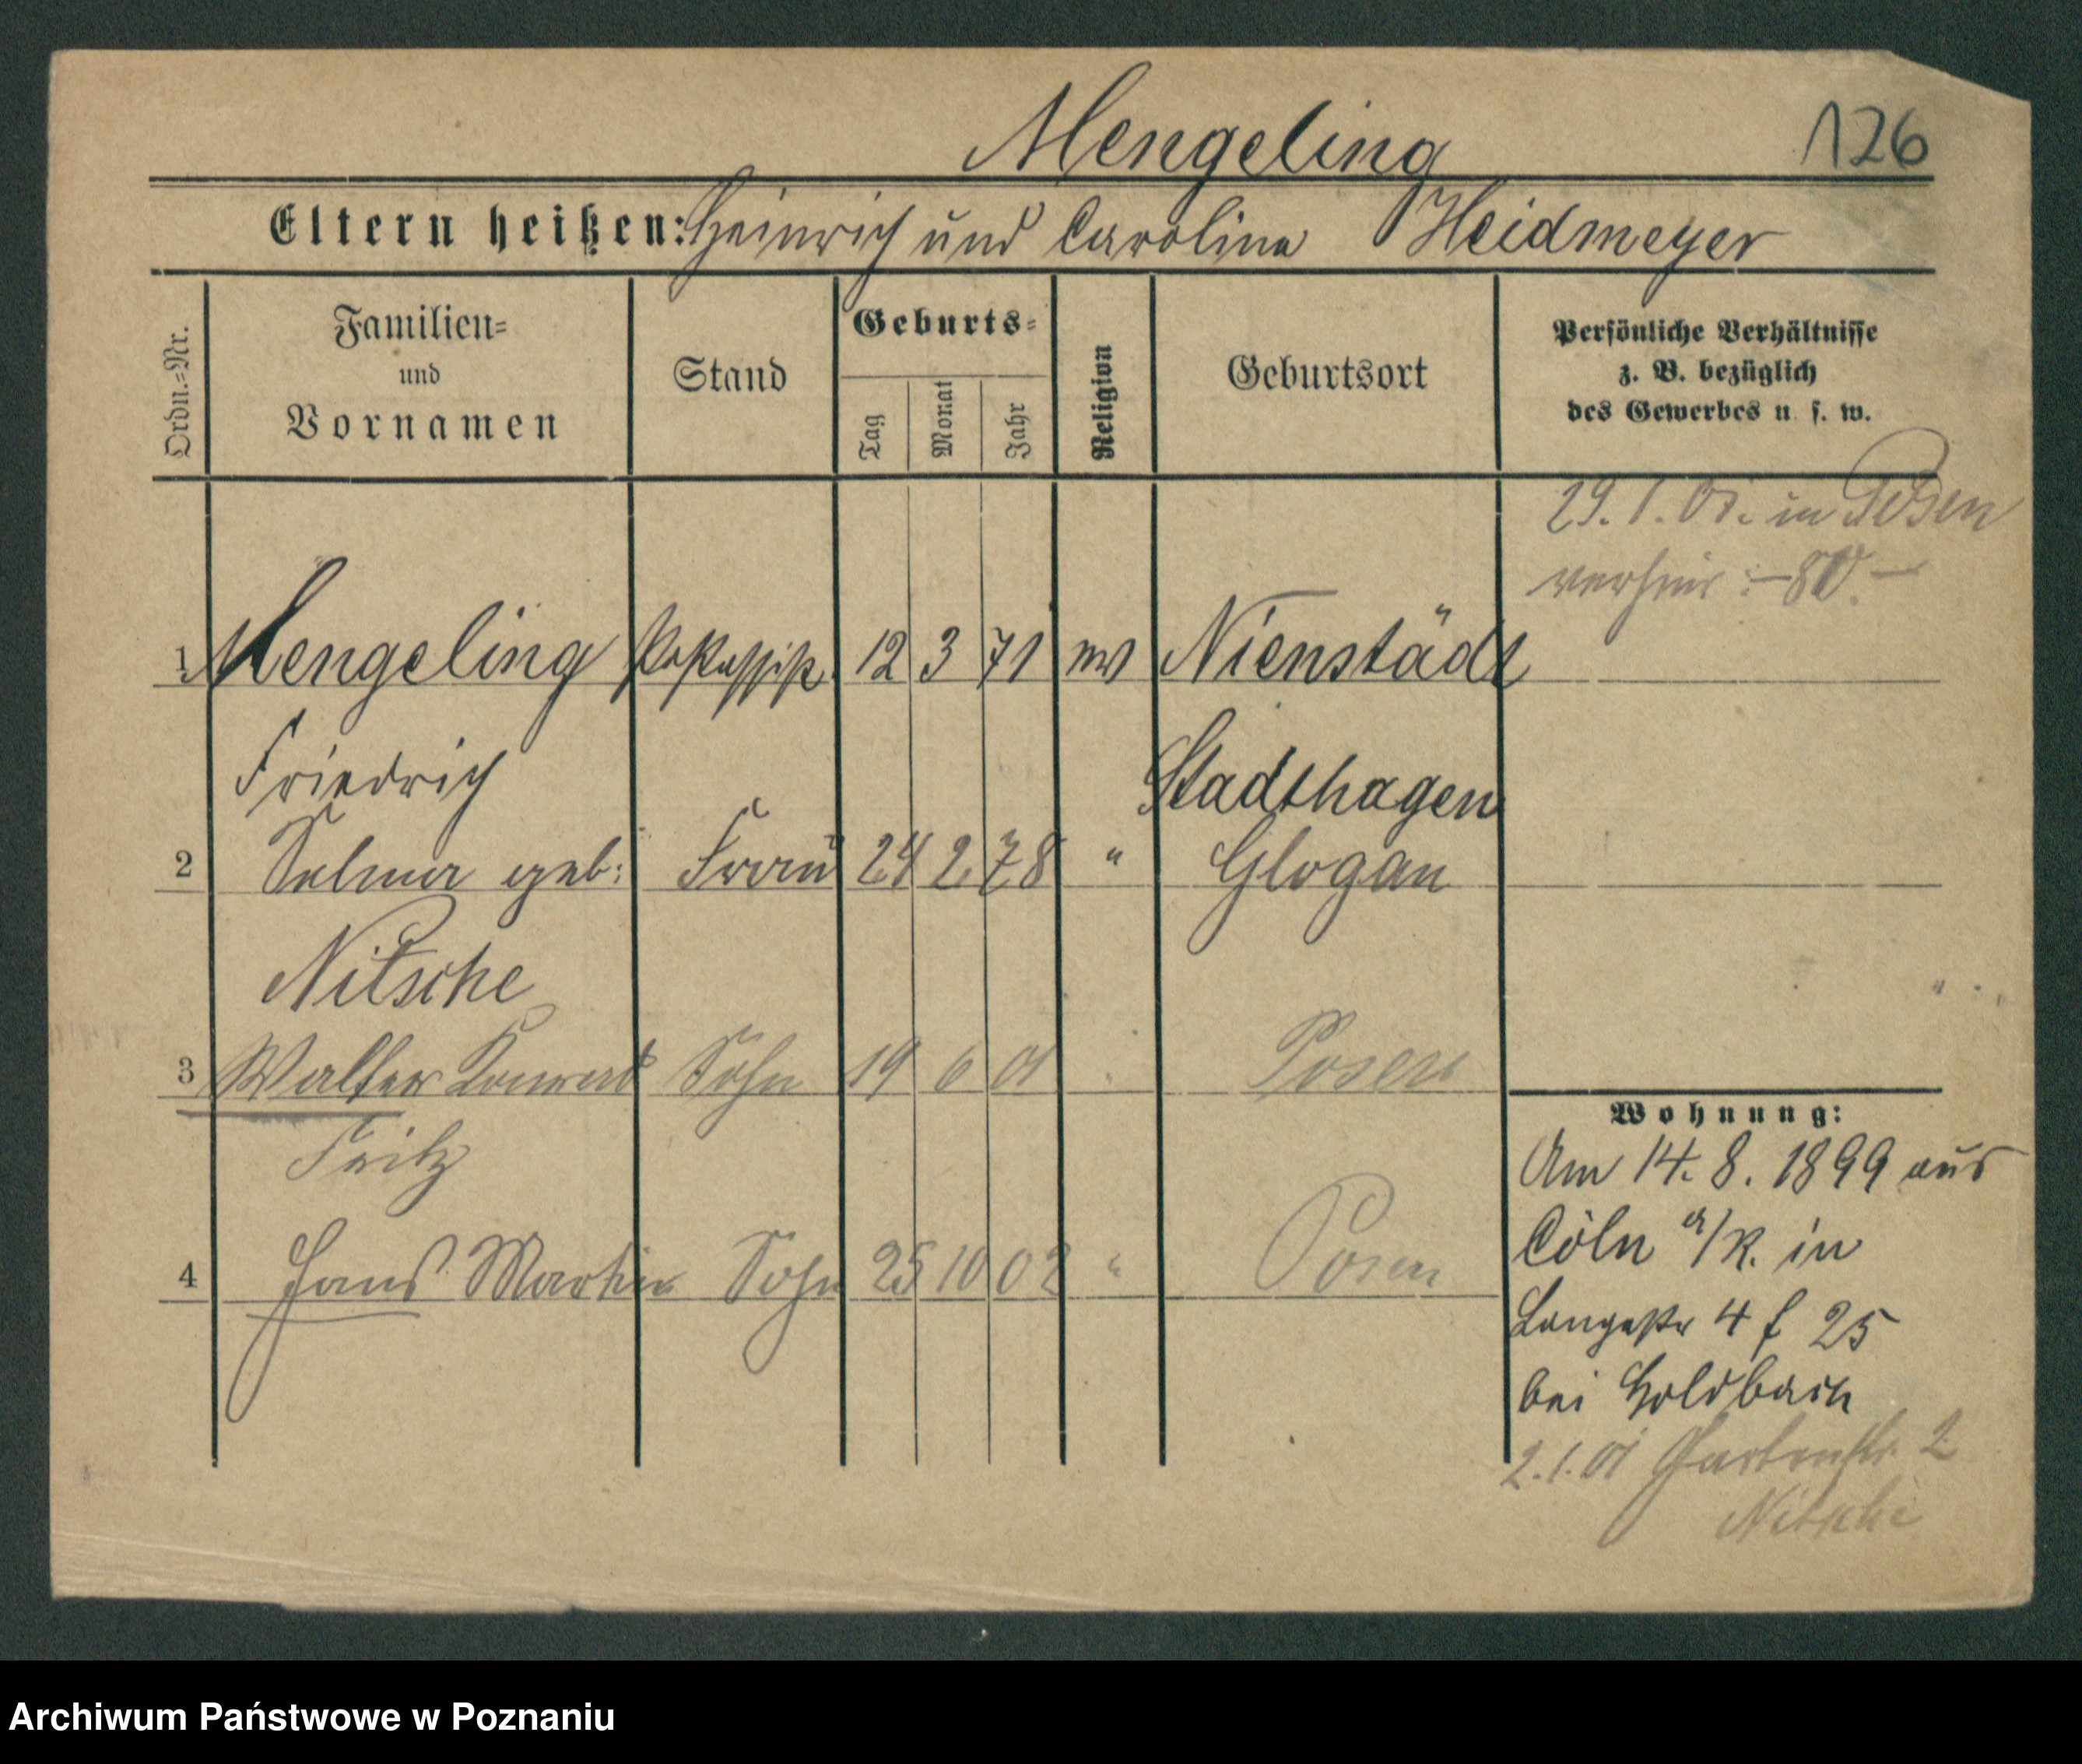 Mengeling
126
Eltern heißen: Heinrich und Caroline Heidmeyer
Ordn.=Nr.
Familien=
und
Vornamen
Stand
Geburts=
Tag
Monat
Jahr
Religion
Geburtsort
Persönliche Verhältnisse
z. B. bezüglich
des Gewerbes u. s. w.
29. 1. 01. in Posen
verheir: 80.
1 Mengeling 12 3 71 ev Nienstädt
Friedrich Stadthagen
2 Selma geb: Frau 24 2 78 " Glogau
Nitsche
3 Walter Konrad Sohn 19 6 01 " Posen
Fritz
4 Hans Martin Sohn 25 10 02 " Posen
Wohnung:
Am 14. 8. 1899 aus
Cöln a/R. in
Langestr 4 f 25
bei Goldbach
2. 1. 01 Gartenstr. 2
Nitsche
Archiwum Państwowe w Poznaniu